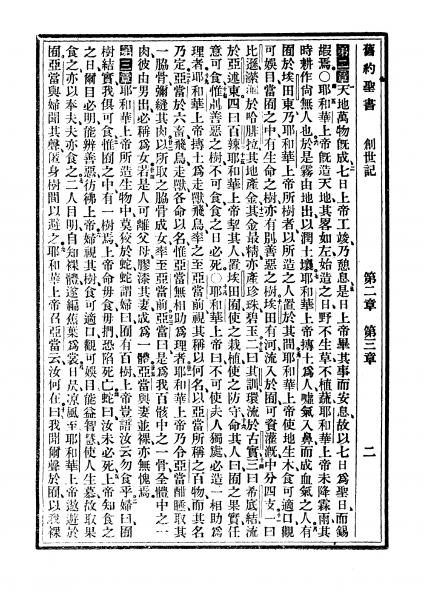 舊約聖書 創世記 第二章 第三章 二
第二章天地萬物既成七日上帝工竣乃憩息是日上帝畢其事而安息故以七日為聖日而錫
嘏焉〇耶和華上帝既造天地其畧如左始造之日野不生草不植蔬耶和華上帝未降霖雨其
時耕作尚無人也於是霧由地出以潤土壤耶和華上帝摶土為人噓氣入鼻而成血氣之人有
囿於埃田東乃耶和華上帝所樹者以所造之人置於其間耶和華上帝使地生木食可適口觀
可娛目當囿之中有生命之樹亦有別善惡之樹埃田有河流入於囿可資灌溉中分四支一曰
比遜瀠洄於哈腓拉其地產金其金最精亦產珍珠碧玉二曰其訓環流於古實三曰希底結流
於亞述東四曰百辣耶和華上帝挈其人置埃田囿使之栽植使之防守命其人曰囿之果實任
意可食惟別善惡之樹不可食食之日必死〇耶和華上帝曰不可使夫人獨處必造一相助為
理者耶和華上帝摶土為走獸飛鳥牽之至亞當前視其稱以何名以亞當所稱之百物而其名
乃定亞當於六畜飛鳥走獸各命以名惟亞當無相助為理者耶和華上帝乃令亞當酣睡取其
一脇骨彌縫其肉以所取之脇骨成女牽至亞當前亞當曰是為我百骸中之一骨全體中之一
肉彼由男出必稱為女若是人可離父母膠漆其妻成為一體亞當與妻並裸亦無愧焉
第三章耶和華上帝所造生物中莫狡於蛇蛇謂婦曰囿有百樹上帝豈語汝云勿食乎婦曰囿
樹結實我儕可食惟囿之中有一樹焉上帝命毋食毋捫恐陷死亡蛇曰汝未必死上帝知食之
之日爾目必明能辨善惡彷彿上帝婦視其樹食可適口觀可娛目能益智慧使人生慕故取果
食之亦以奉夫夫亦食之二人目明自知裸體遂編蕉葉為裳日昃涼風至耶和華上帝遨遊於
囿亞當與婦聞其聲匿身樹間以避之耶和華上帝召亞當云汝何在曰我聞爾聲於囿以我裸